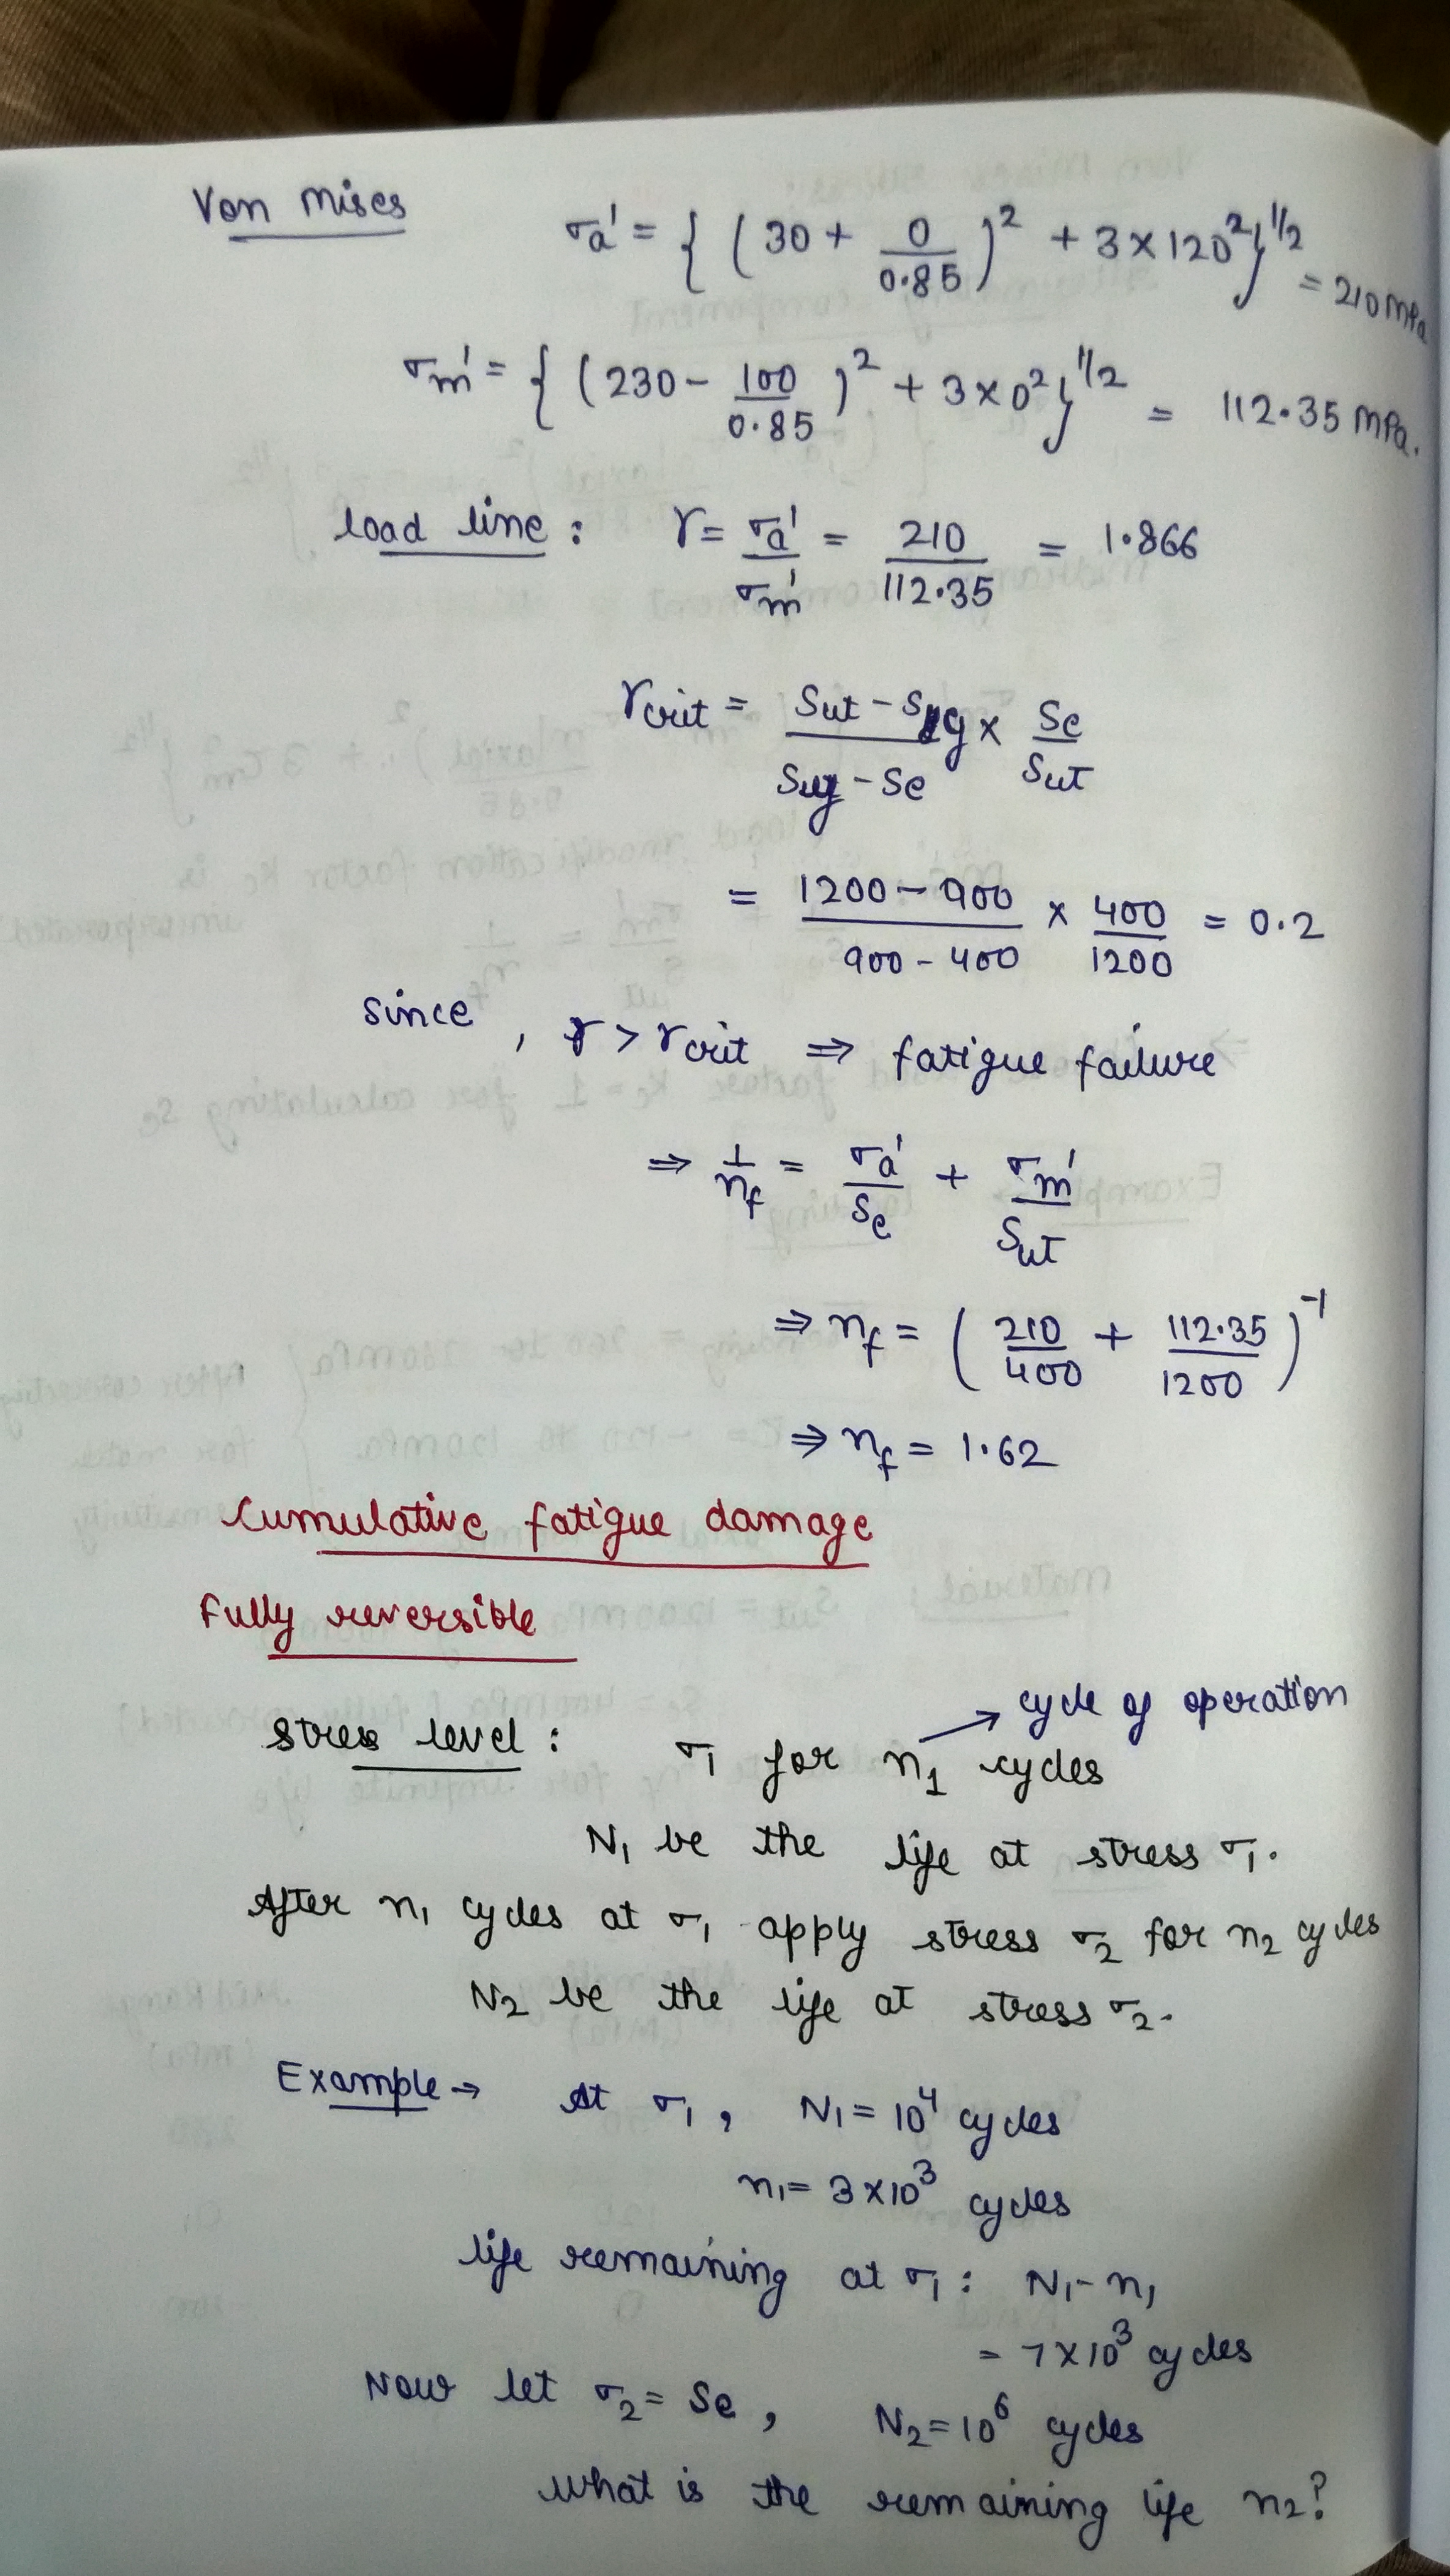 Von mises
σa' = { (30 + 0/0.85)² + 3×120² }^1/2 = 210 mPa
σm' = { (230 - 100/0.85)² + 3×0² }^1/2 = 112.35 mPa.
load line : r = σa'/σm' = 210/112.35 = 1.866
rcrit = (Sut - Sy)/(Sy - Se) × Se/Sut
= (1200 - 900)/(900 - 400) × 400/1200 = 0.2
since , r > rcrit ⇒ fatigue failure
⇒ 1/nf = σa'/Se + σm'/Sut
⇒ nf = (210/400 + 112.35/1200)^-1
⇒ nf = 1.62
Cumulative fatigue damage
Fully reversible
cycle of operation
Stress level : σ1 for n1 cycles
N1 be the life at stress σ1.
After n1 cycles at σ1 apply stress σ2 for n2 cycles
N2 be the life at stress σ2.
Example → At σ1 , N1 = 10⁴ cycles
n1 = 3×10³ cycles
life remaining at σ1 : N1 - n1
= 7×10³ cycles
Now let σ2 = Se , N2 = 10⁶ cycles
What is the remaining life n2?